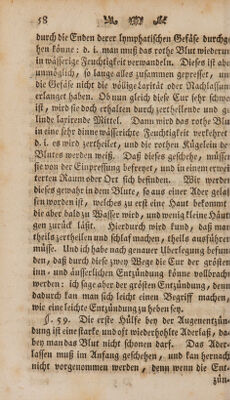 58
durch die Enden derer lymphatischen Gefäse durchge
hen könne: d. i. man muß das rothe Blut wiederum
in wässerige Feuchtigkeit verwandeln. Dieses ist aber
unmöglich, so lange alles zusammen gepresset, und
die Gefäse nicht die völlige Laxität oder Nachlassung
erlanget haben. Ob nun gleich diese Cur sehr schwer
ist, wird sie doch erhalten durch zertheilende und ge
linde laxirende Mittel. Dann wird das rothe Blut
in eine sehr dinne wässerichte Feuchtigkeit verkehret,
d. i. es wird zertheilet, und die rothen Kügelein des
Blutes werden weiß. Daß dieses geschehe, müssen
sie von der Einpressung befreyet, und in einem erwei
terten Raum oder Ort sich befinden. Wie werden
dieses gewahr in dem Blute, so aus einer Ader gelas
sen worden ist, welches zu erst eine Haut bekommt,
die aber bald zu Wasser wird, und wenig kleine Häut
gen zurück läßt. Hierdurch wird kund, daß man
theils zertheilen und schlaf machen, theils ausführen
müsse. Und ich habe nach genauer Überlegung befun
den, daß durch diese zwey Wege die Cur der grösten
inn und äusserlichen Entzündung könne vollbracht
werden: ich sage aber der grösten Entzündung, denn
dadurch kan man sich leicht einen Begriff machen,
wie eine leichte Entzündung zu heben sey.
§. 59. Die erste Hülfe bey der Augenentzün
dung ist eine starke und oft wiederhohlte Aderlaß, da
bey man das Blut nicht schonen darf. Das Ader
lassen muß im Anfang geschehen, und kan hernach
nicht vorgenommen werden, denn wenn die Ent
zün-